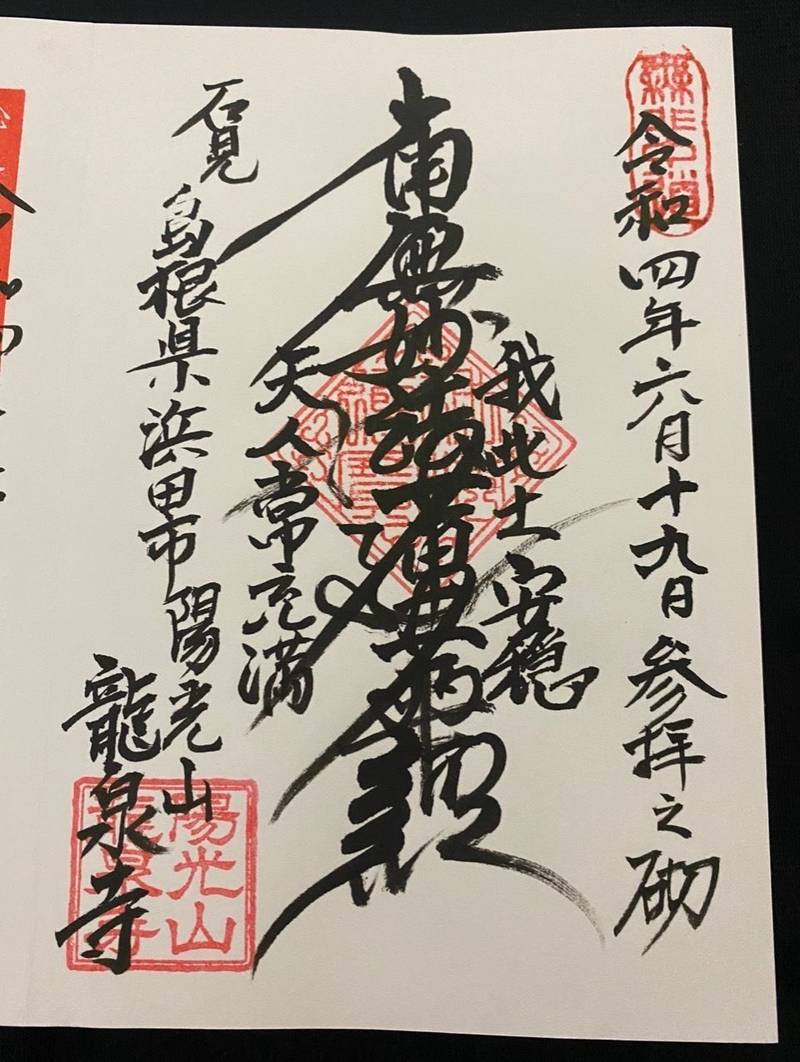 令和四年六月十九日参拝之砌
我此土安穏
南無妙法蓮華経
天人常充満
石見
島根県浜田市陽光山
龍泉寺
陽光山
龍泉寺